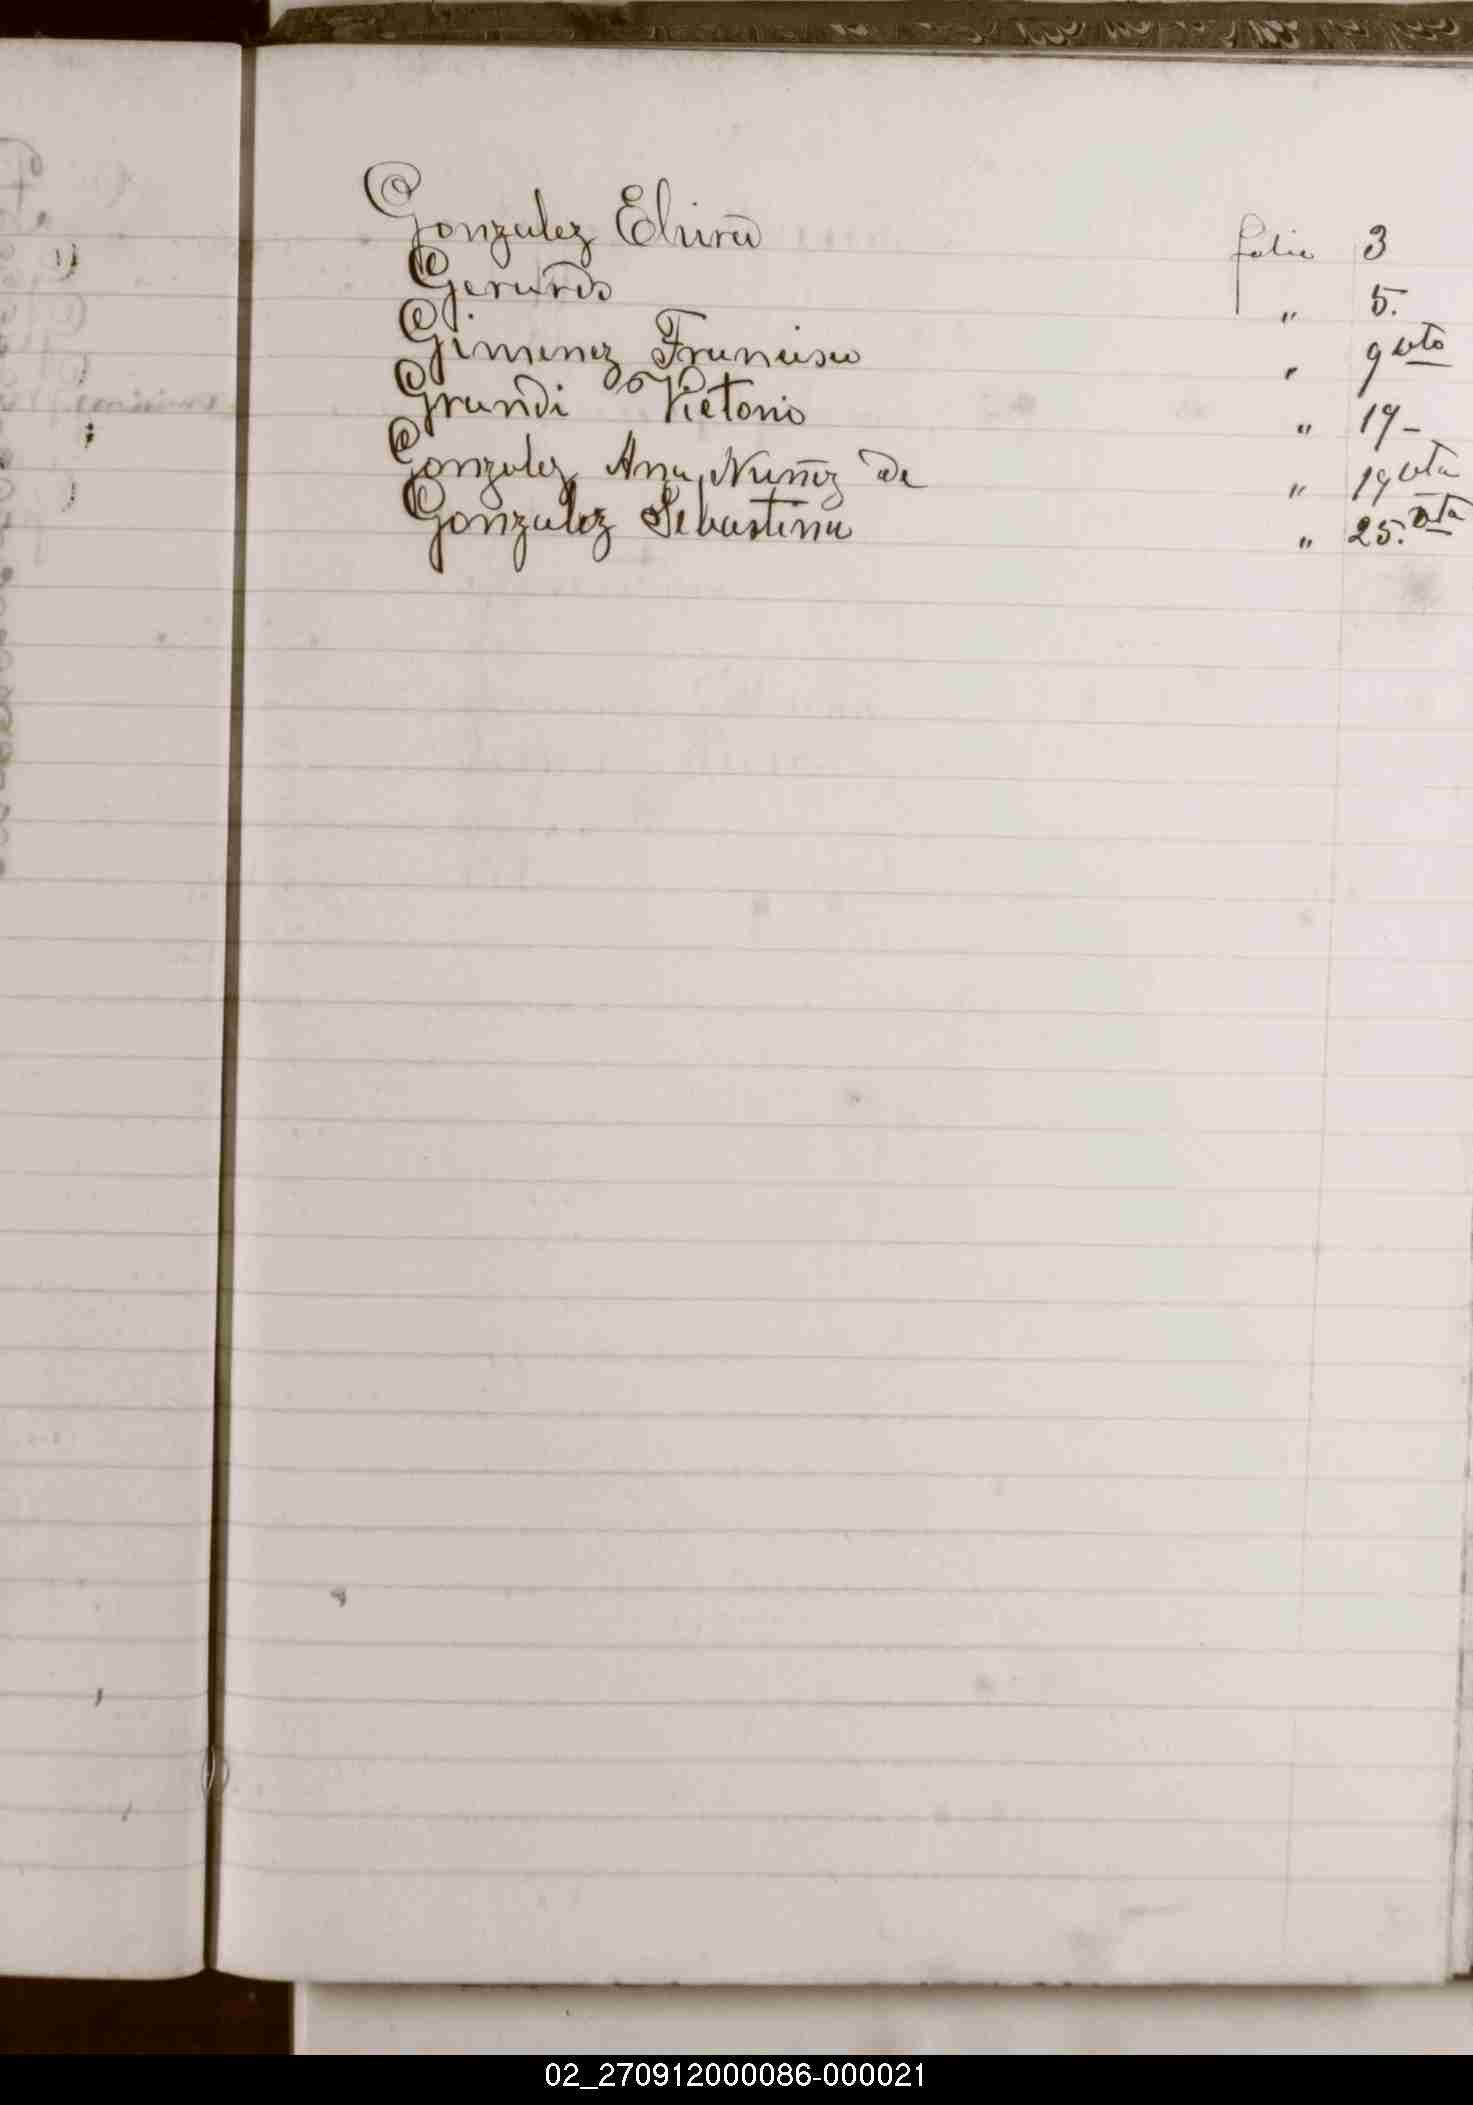 Gonzalez Elvira folio 3
Gerardo " 5.
Gimenez Francisco " 9 vto
Grandi Victorio " 19-
Gonzalez Ana Nuñez de " 19 vta
Gonzalez Sebastina " 25. vta
02_270912000086-000021